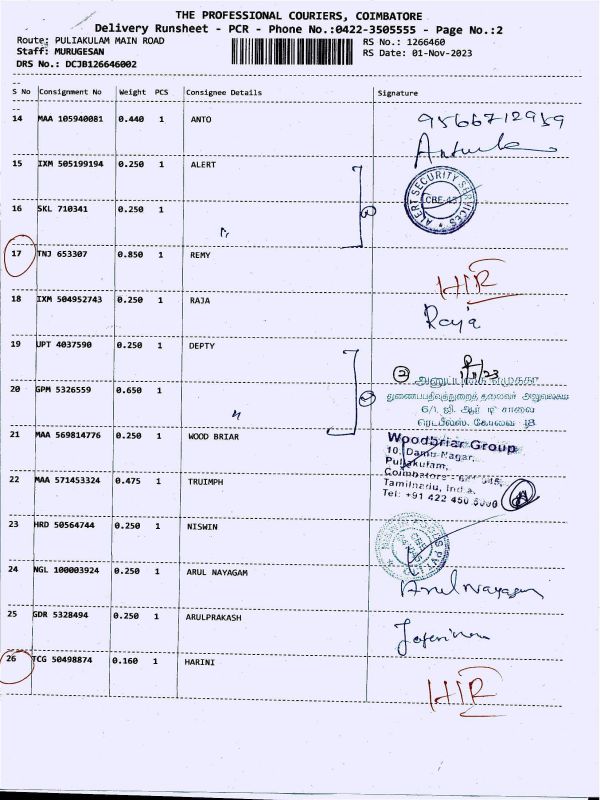 THE PROFESSIONAL COURIERS, COIMBATORE
Delivery Runsheet - PCR - Phone No.:0422-3505555 - Page No.:2
Route: PULIAKULAM MAIN ROAD RS No.: 1266460
Staff: MURUGESAN RS Date: 01-Nov-2023
DRS No.: DCJB126646002
S No Consignment No Weight PCS Consignee Details Signature
14 MAA 105940081 0.440 1 ANTO 9566712959
15 IXM 505199194 0.250 1 ALERT
ALERT SECURITY SERVICES
CBE-45
16 SKL 710341 0.250 1
17 TNJ 653307 0.850 1 REMY HIR
18 IXM 504952743 0.250 1 RAJA Raja
19 UPT 4037590 0.250 1 DEPTY
2
துணைப்பதிவுத்துறைத் தலைவர் அலுவலகம்
20 GPM 5326559 0.650 1
6/1, ஜி. ஆர் டி சாலை
ரெட்பீல்ஸ், கோவை 18
21 MAA 569814776 0.250 1 WOOD BRIAR
Woodbriar Group
10, Damu Nagar,
Puliakulam,
Coimbatore
Tamilnadu, India.
Tel: +91 422 450 5000
22 MAA 571453324 0.475 1 TRUIMPH
23 HRD 50564744 0.250 1 NISWIN
24 NGL 100003924 0.250 1 ARUL NAYAGAM Arul Nayagam
25 GDR 5328494 0.250 1 ARULPRAKASH
26 TCG 50498874 0.160 1 HARINI HIR